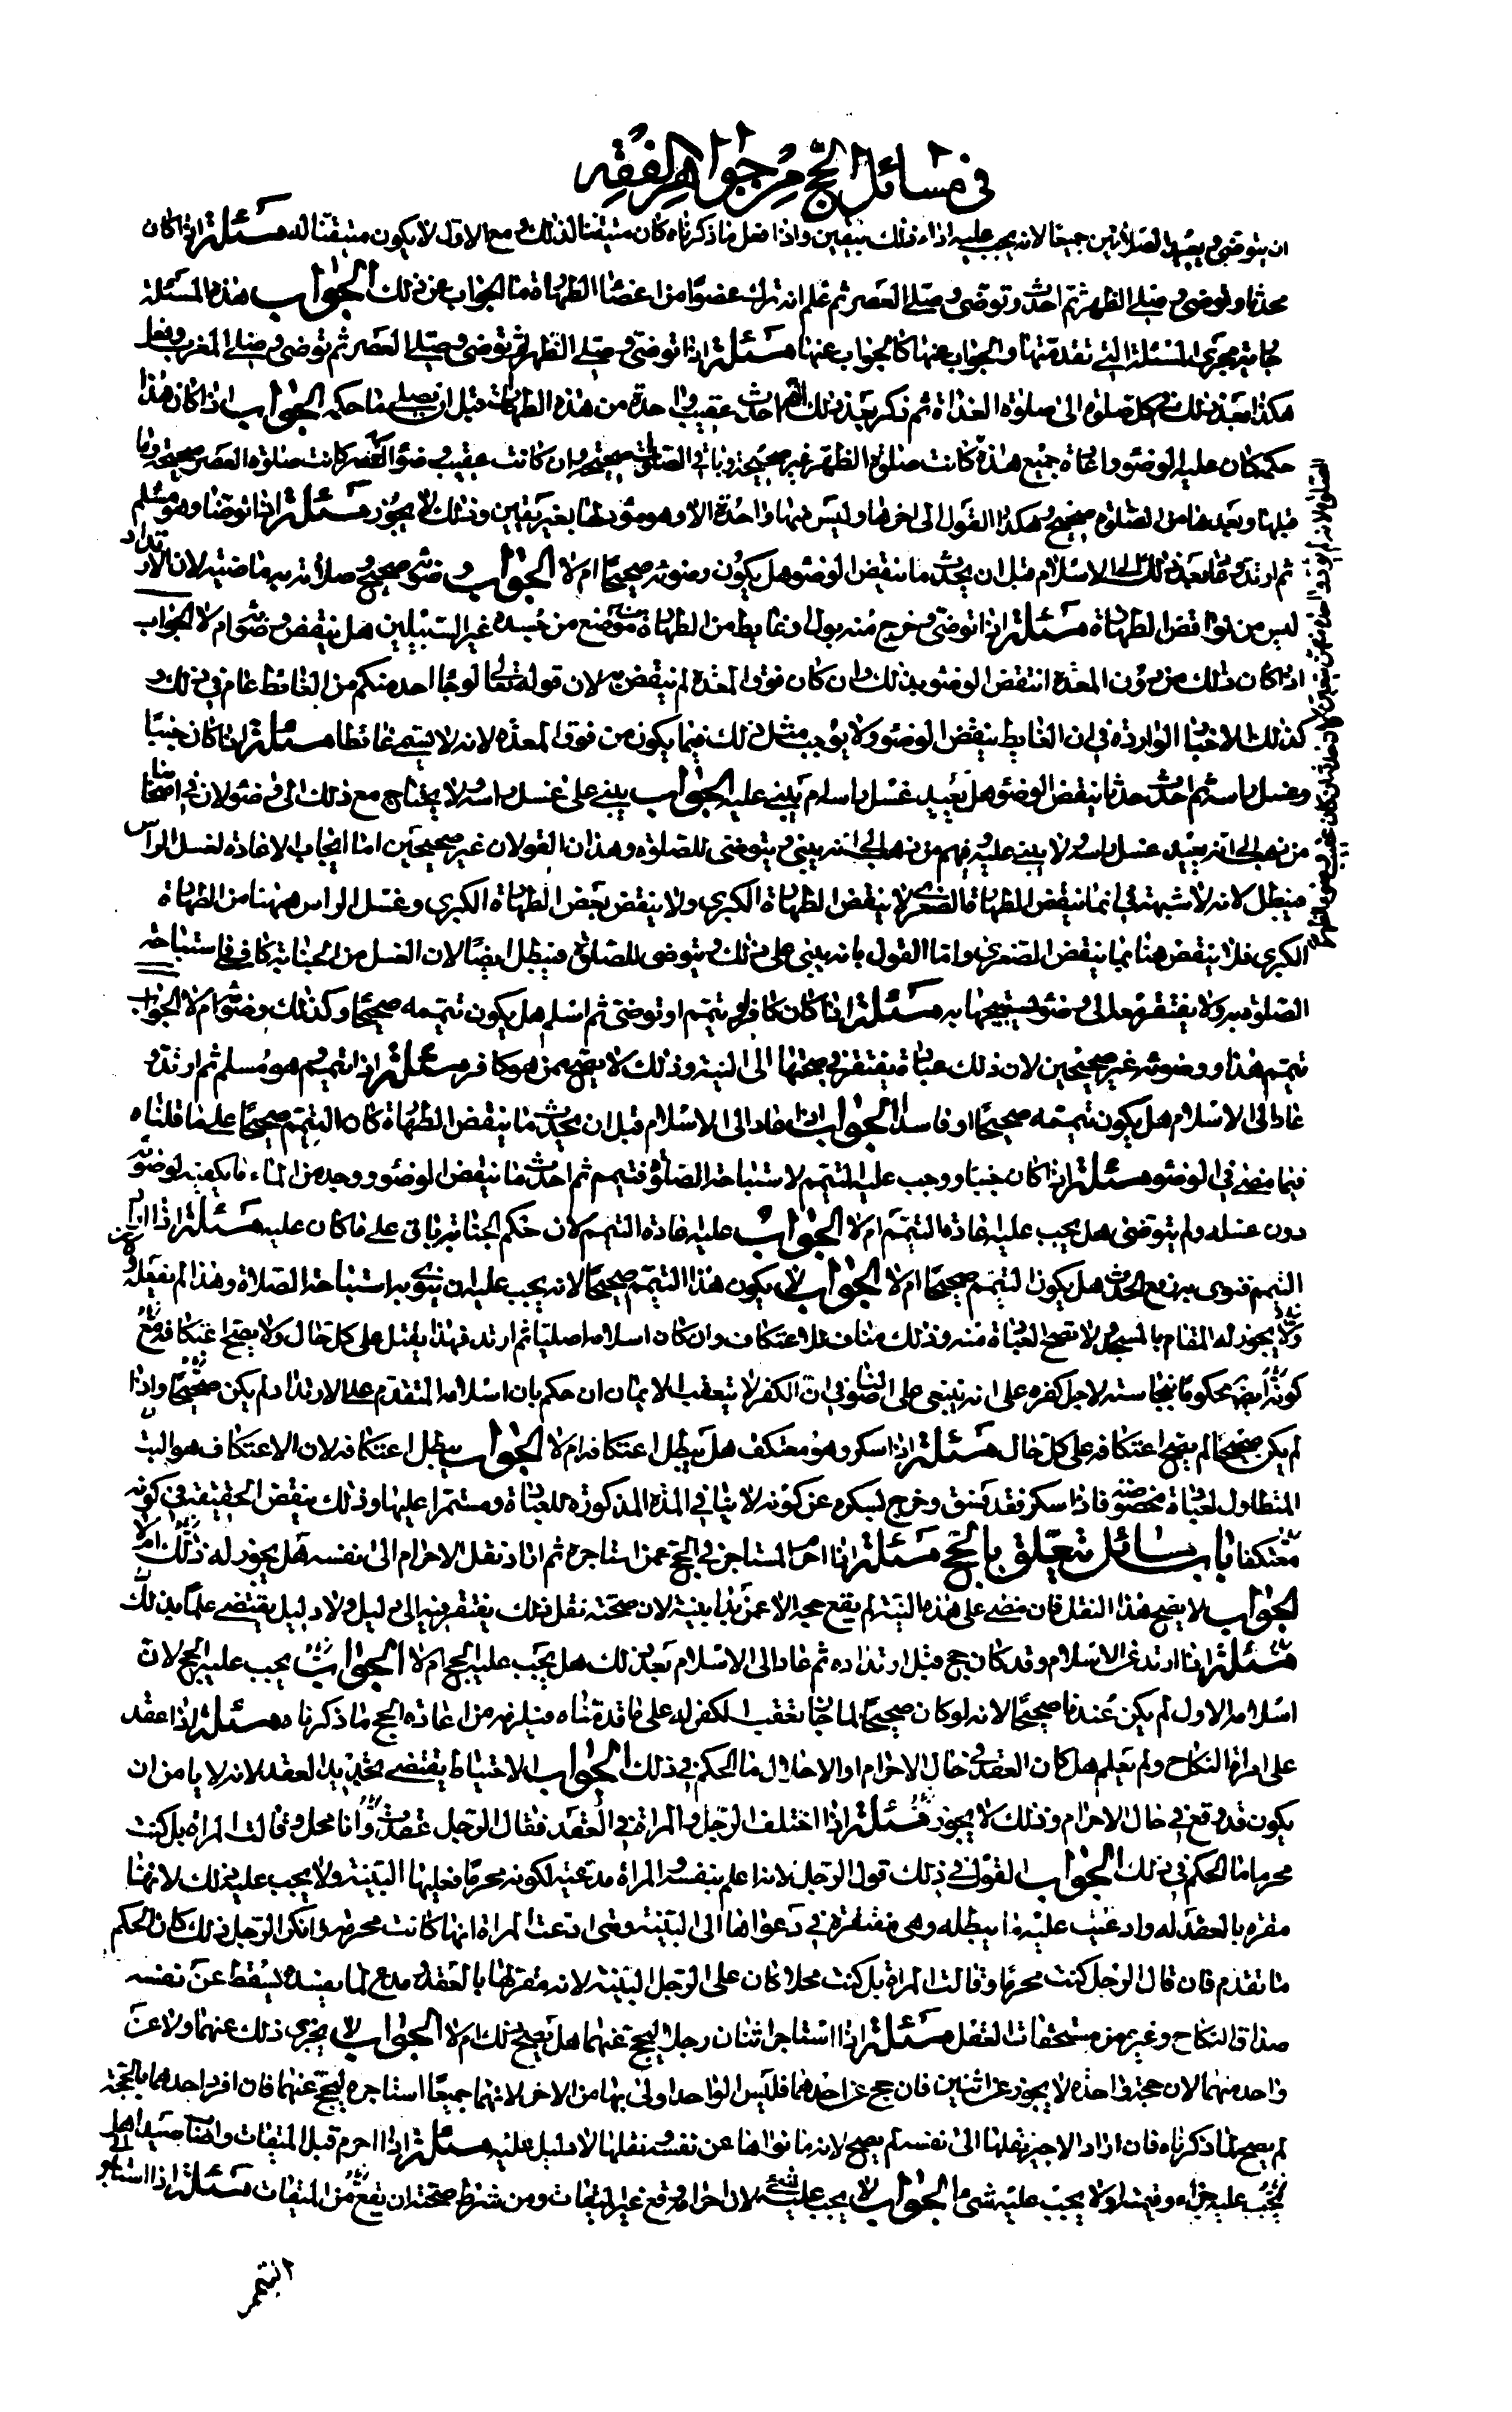 في مسائل الحج من جواهر الفقه
ان يتوضى ويعيد الصلاتين جميعا لانه يجب عليه اداء ذلك بيقين واذا فعل ما ذكرناه كان متيقنا لذلك ومع الاول لا يكون متيقنا له مسئلة اذا كان
محدثا وتوضى وصلى الظهر ثم احدث وتوضى وصلى العصر ثم علم انه ترك عضوا من اعضاء الطهارة ما الجواب عن ذلك الجواب هذه المسئلة
جارية مجرى المسئلة التي تقدمتها والجواب عنها كالجواب عنها مسئلة اذا توضى وصلى الظهر ثم توضى وصلى العصر ثم توضى وصلى المغرب وفعل
هكذا بعد ذلك في كل صلوة الى صلوة الغداة ثم ذكر بعد ذلك انه احدث عقيب واحدة من هذه الطهارات قبل ان يصلي ما حكمه الجواب اذا كان هذا
حكمه كان عليه الوضوء واعادة جميع هذه كانت صلوة الظهر غير صحيحة وباقي الصلوات صحيحة وان كانت عقيب وضوء العصر كانت صلوة العصر صحيحة وما
قبلها وبعدها من الصلوة صحيح وهكذا القول الى اخرها وليس منها واحدة الا وهو مؤد لها بغير يقين وذلك لا يجوز مسئلة اذا توضا وهو مسلم
ثم ارتد وعاد بعد ذلك الى الاسلام قبل ان يحدث ما ينقض الوضوء هل يكون وضوئه صحيحا ام لا الجواب وضوئه صحيح وصلاته به ماضية لان الارتداد
ليس من نواقض الطهارة مسئلة اذا توضى وخرج منه بول او غايط من الطهارة من موضع من جسده غير السبيلين هل ينقض وضوئه ام لا الجواب
اذا كان ذلك من دون المعدة انتقض الوضوء بذلك وان كان فوق المعدة لم ينقض به لان قوله تعالى او جاء احد منكم من الغائط عام في ذلك و
كذلك الاخبار الواردة في ان الغايط ينقض الوضوء ولا يوجب مثل ذلك فيما يكون من فوق المعدة لانه لا يسمى غائطا مسئلة اذا كان جنبا
وغسل راسه ثم احدث حدثا ينقض الوضوء هل يعيد غسل راسه ام يبني عليه الجواب يبني على غسل راسه ولا يحتاج مع ذلك الى وضوء لان في اصحابنا
من ذهب الى انه يعيد غسل راسه ولا يبني عليه وفيهم من ذهب الى انه يبني ويتوضى للصلوة وهذان القولان غير صحيحين اما ايجاب الاعادة لغسل الراس
فيبطل لانه لا شبهة في انما ينقض الطهارة الصغرى لا ينقض الطهارة الكبرى ولا ينقض بعض الطهارة الكبرى وغسل الراس ههنا من الطهارة
الكبرى فلا ينقض هنا بما ينقض الصغرى واما القول بانه يبني على ذلك ويتوضى للصلوة فيبطل ايضا لان الغسل من الجنابة كاف في استباحة
الصلوة به ولا يفتقر معه الى وضوء يستبيحها به مسئلة اذا كان كافر وتيمم او توضى ثم اسلم هل يكون تيممه صحيحا وكذلك وضوئه ام لا الجواب
تيمم هذا ووضوئه غير صحيحين لان ذلك عبادة يفتقر في صحتها الى النية وذلك لا يصح ممن هو كافر مسئلة اذا تيمم وهو مسلم ثم ارتد و
عاد الى الاسلام هل يكون تيممه صحيحا او فاسدا الجواب اذا عاد الى الاسلام قبل ان يحدث ما ينقض الطهارة كان التيمم صحيحا على ما قلناه
فيما مضى في الوضوء مسئلة اذا كان جنبا ووجب عليه التيمم لاستباحة الصلوة فتيمم ثم احدث ما ينقض الوضوء ووجد من الماء ما يكفيه لوضوئه
دون غسله ولم يتوضى هل يجب عليه اعادة التيمم ام لا الجواب عليه اعادة التيمم لان حكم الجنابة باقي على ما كان عليه مسئلة اذا اراد
التيمم فنوى به رفع الحدث هل يكون التيمم صحيحا ام لا الجواب لا يكون هذا التيمم صحيحا لانه يجب عليه ان ينوي به استباحة الصلاة وهذا لم يفعله و
لا يجوز له المقام بالمسجد ولا تصح العبادة منه وذلك مناف للاعتكاف وان كان اسلامه اصليا ثم ارتد فهذا يقتل على كل حال ولا يصح اعتكافه مع
كونه ايضا محكوما بنجاسته لاجل كفره على انه ينبني على اصولنا في ان الكفر لا يتعقب الايمان ان حكم بان اسلامه المتقدم على الارتداد لم يكن صحيحا واذا
لم يكن صحيحا لم يصح اعتكافه على كل حال مسئلة اذا سكر وهو معتكف هل يبطل اعتكافه ام لا الجواب يبطل اعتكافه لان الاعتكاف هو اللبث
المتطاول لعبادة مخصوصة فاذا سكر فقد فسق وخرج بسكره عن كونه لابثا في المدة المذكورة للعبادة ومستمرا عليها وذلك ينقض الحقيقة في كونه
معتكفا باب مسائل تتعلق بالحج مسئلة اذا احرم المستاجر في الحج عمن استاجره ثم اراد نقل الاحرام الى نفسه هل يجوز له ذلك ام لا
الجواب لا يصح هذا النقل فان مضى على هذه النية لم يقع حجه الا عمن بدا بنيته لان صحة نقل ذلك يفتقر فيه الى دليل ولا دليل يقتضي علما بذلك
مسئلة اذا ارتد عن الاسلام وقد كان حج قبل ارتداده ثم عاد الى الاسلام بعد ذلك هل يجب عليه الحج ام لا الجواب يجب عليه الحج لان
اسلامه الاول لم يكن عندنا صحيحا لانه لو كان صحيحا لما جاز تعقب الكفر له على ما قدمناه فيلزمه من اعادة الحج ما ذكرناه مسئلة اذا عقد
على امراة النكاح ولم يعلم هل كان العقد في حال الاحرام او الاحلال ما الحكم في ذلك الجواب الاحتياط يقتضي تجديد العقد لانه لا يامن ان
يكون قد وقع في حال الاحرام وذلك لا يجوز مسئلة اذا اختلف الرجل والمراة في العقد فقال الرجل عقدت وانا محل وقالت المراة بل كنت
محرما ما الحكم في ذلك الجواب القول في ذلك قول الرجل لانه اعلم بنفسه والمراة مدعية لكونه محرما فعليها البينة ولا يجب عليه ذلك لانها
مقرة بالعقد له وادعيت عليه ما يبطله وهي مفتقرة في دعواها الى البينة ومتى ادعت المراة انها كانت محرمة وانكر الرجل ذلك كان الحكم
ما تقدم فان قال الرجل كنت محرما وقالت المراة بل كنت محلا كان على الرجل البينة لانه مقر لها بالعقد ومدع لما يفسده ليسقط عن نفسه
صداق النكاح وغيره من مستحقات العقد مسئلة اذا استاجر اثنان رجلا ليحج عنهما هل يصح ذلك ام لا الجواب لا يجزي ذلك عنهما ولا عن
واحد منهما لان حجة واحدة لا يجوز عن اثنين فان حج عن احدهما فليس الواحد اولى بها من الاخر لانهما جميعا استاجره ليحج عنهما فان افرد احدهما بالحجة
لم يصح لما ذكرناه فان اراد الاجير نقلها الى نفسه لم يصح لانه ما نواها عن نفسه ونقلها لا دليل عليه مسئلة اذا احرم قبل الميقات واصاب صيدا هل
يجب عليه جزاء وقيمته او لا يجب عليه شيء الجواب لا يجب عليه شيء لان احرامه وقع غير الميقات ومن شرط صحته ان يقع من الميقات مسئلة اذا استاجر